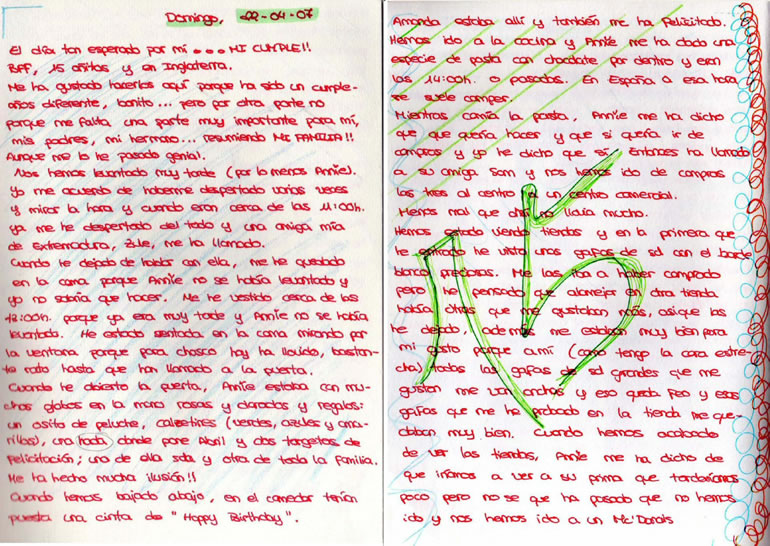 Domingo, 22-04-07
El día tan esperado por mi... MI CUMPLE!!
BFF, 15 añitos y en Inglaterra.
Me ha gustado hacerlos aquí porque ha sido un cumple-
años diferente, bonito... pero por otra parte no
porque me falta una parte muy importante para mí,
mis padres, mi hermano... resumiendo MI FAMILIA!!
Aunque me lo he pasado genial.
Nos hemos levantado muy tarde (por lo menos Annie).
Yo me acuerdo de haberme despertado varias veces
y mirar la hora y cuando eran cerca de las 11:00h.
ya me he despertado del todo y una amiga mía
de Extremadura, Zule, me ha llamado.
Cuando he dejado de hablar con ella, me he quedado
en la cama porque Annie no se había levantado y
yo no sabría que hacer. Me he vestido cerca de las
12:00h. porque ya era muy tarde y Annie no se había
levantado. He estado sentada en la cama mirando por
la ventana porque para chasco hoy ha llovido, bastan-
te rato hasta que han llamado a la puerta.
Cuando he abierto la puerta, Annie estaba con mu-
chos globos en la mano rosas y dorados y regalos:
un osito de peluche, calcetines (verdes, azules y ama-
rillos), una hada donde pone Abril y dos targetas de
felicitación; una de ella sola y otra de toda la familia.
Me ha hecho mucha ilusión!!
Cuando hemos bajado abajo, en el comedor tenían
puesta una cinta de "Happy Birthday".
Amanda estaba allí y también me ha felicitado.
Hemos ido a la cocina y Annie me ha dado una
especie de pasta con chocolate por dentro y eran
las 14:00h. o pasadas. En España a esa hora
se suele comer.
Mientras comía la pasta, Annie me ha dicho
que que quería hacer y que si quería ir de
compras y yo he dicho que si. Entonces ha llamado
a su amiga Sam y nos hemos ido de compras
las tres al centro a un centro comercial.
Menos mal que ahí no llovía mucho.
Hemos estado viendo tiendas y en la primera que
he entrado he visto unas gafas de sol con el borde
blanco preciosas. Me las iba a haber comprado
pero he pensado que alomejor en otra tienda
había otras que me gustaban más, asique las
he dejado, además me estaban muy bien para
mi gusto porque a mí (como tengo la cara estre-
cha) todas las gafas de sol grandes que me
gustan me van anchas y eso queda feo y esas
gafas que me he probado en la tienda me que-
daban muy bien. Cuando hemos acabado
de ver las tiendas, Annie me ha dicho de
que iríamos a ver a su prima que tardaríamos
poco pero no se que ha pasado que no hemos
ido y nos hemos ido a un Mc'Donals
15